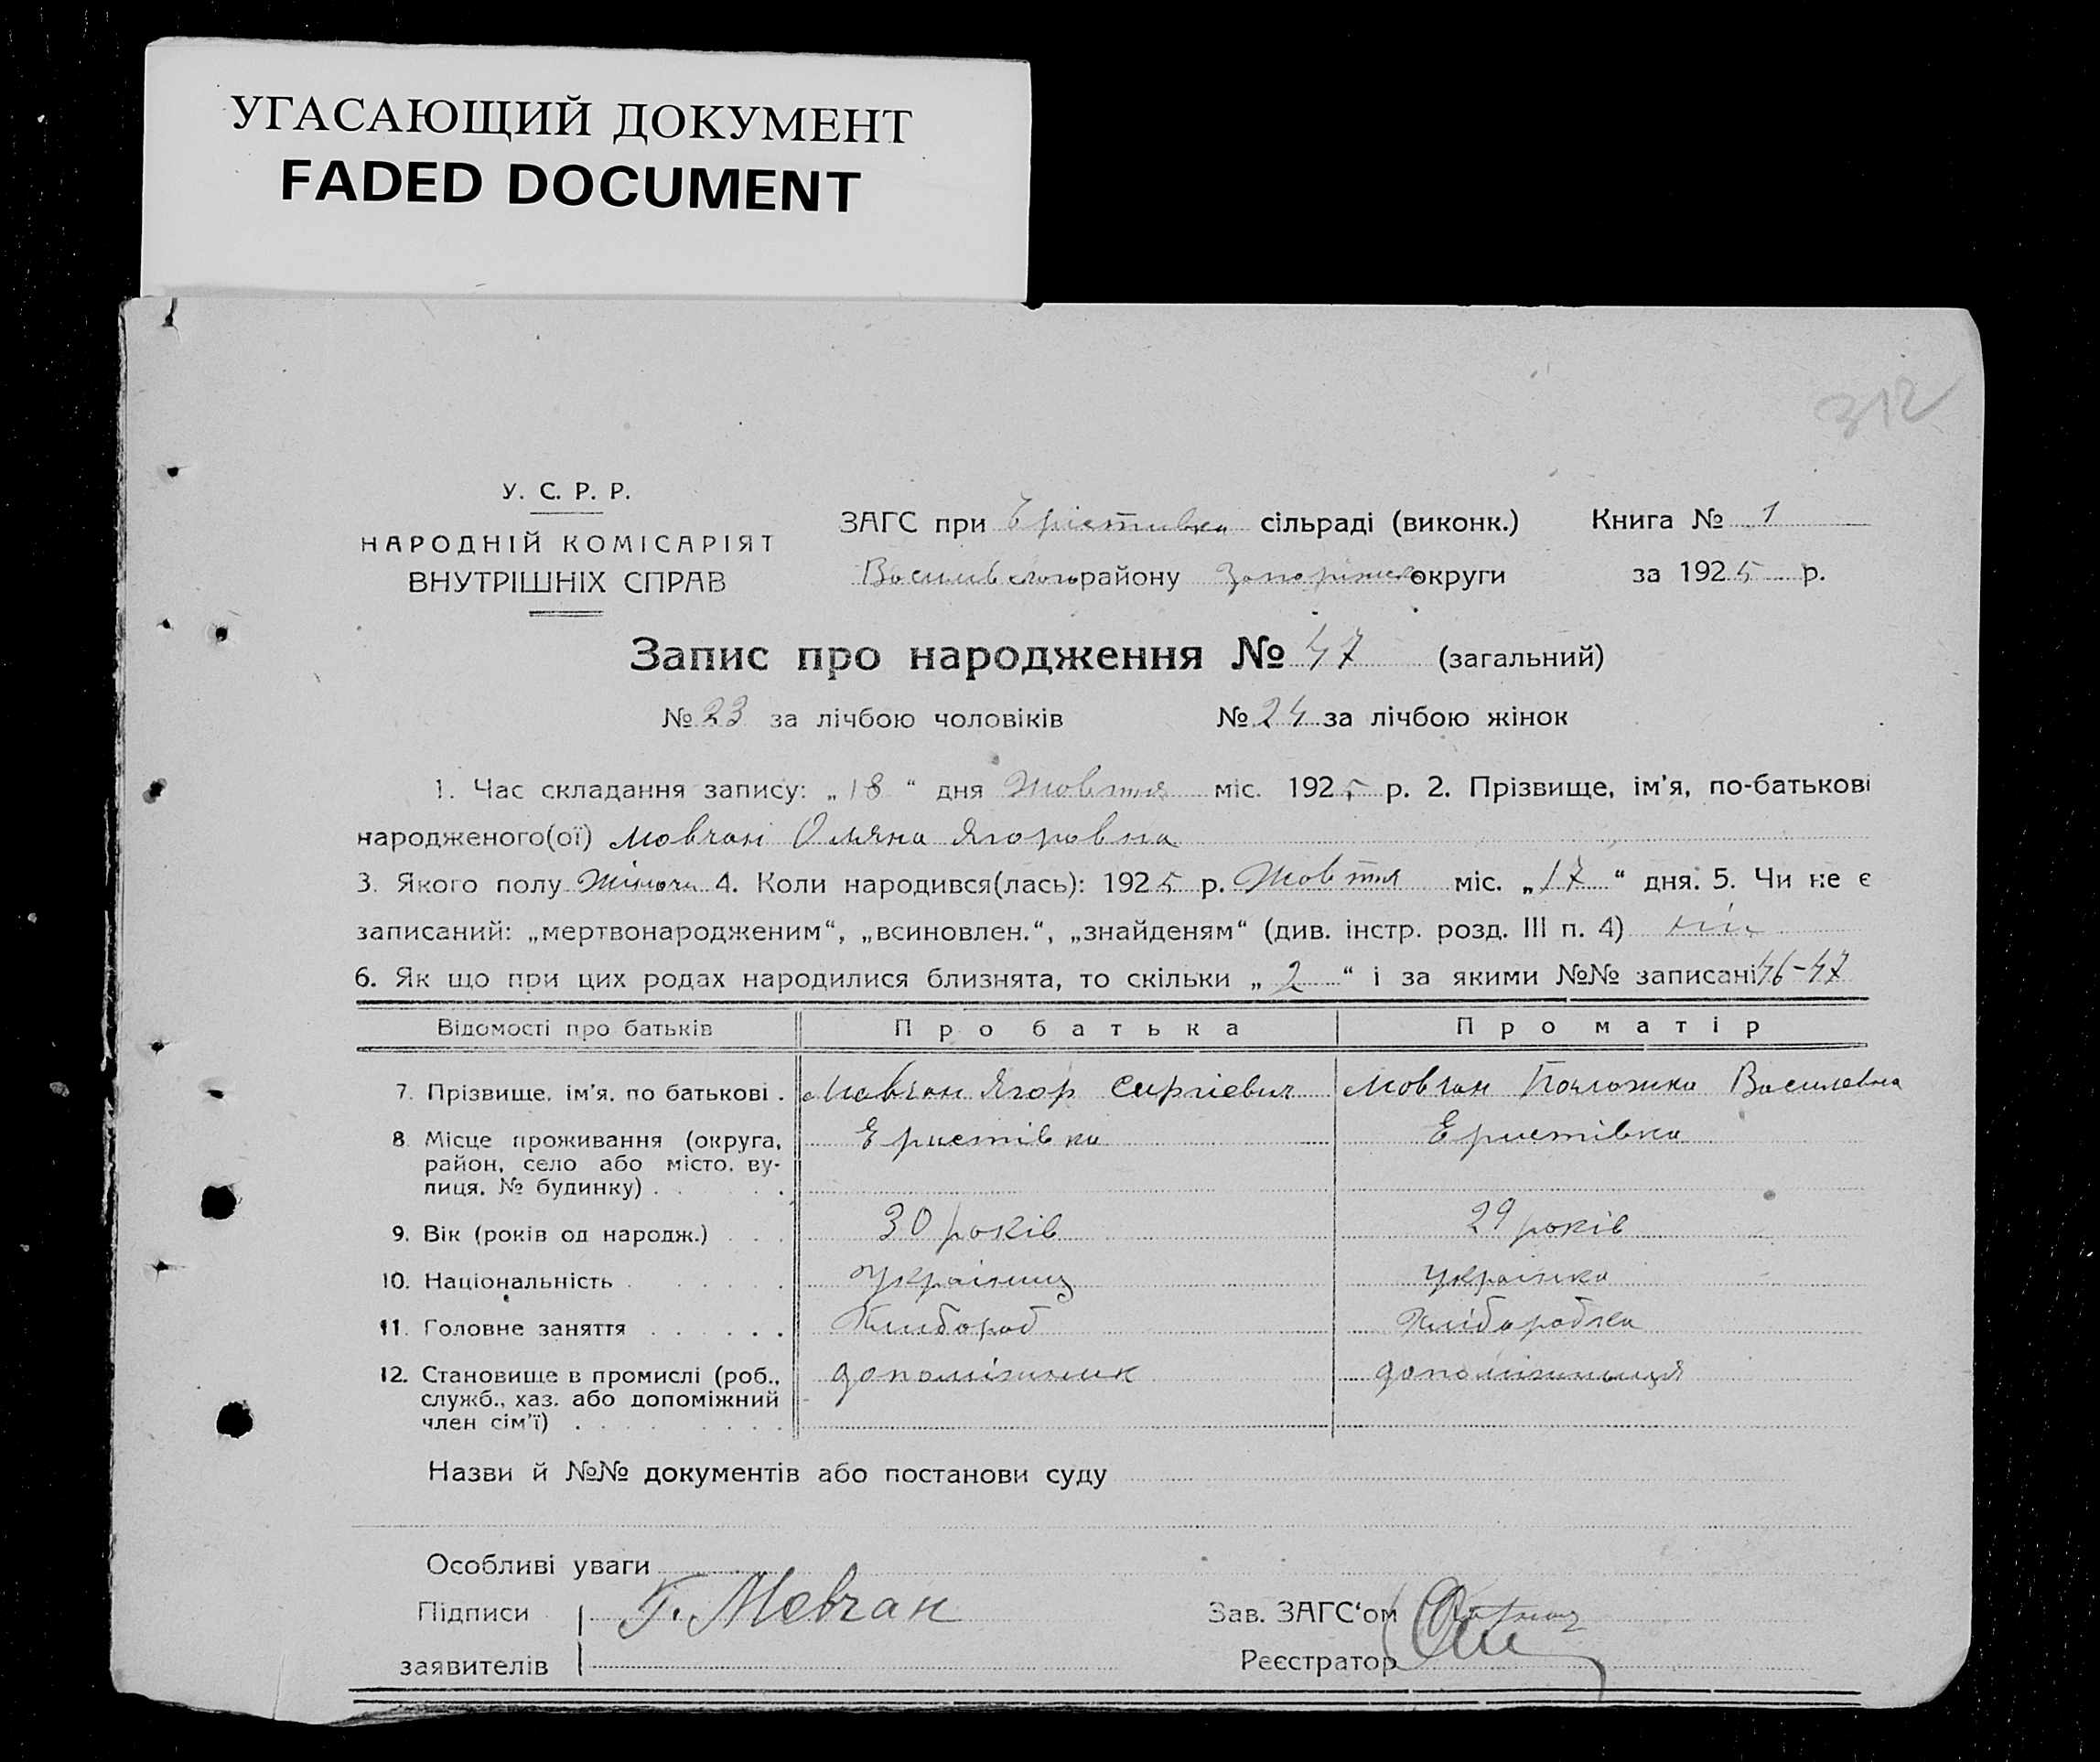 УГАСАЮЩИЙ ДОКУМЕНТ
FADED DOCUMENT
312
У. С. Р. Р.
НАРОДНІЙ КОМІСАРІЯТ
ВНУТРІШНІХ СПРАВ
ЗАГС при сільраді (виконк.) Книга № 1
району округи за 1925 р.
Запис про народження № 47 (загальний)
№ 23 за лічбою чоловіків № 24 за лічбою жінок
1. Час складання запису: „18“ дня Жовтня міс. 1925 р. 2. Прізвище, ім'я, по-батькові
народженого(ої) Мовчан Оляна Ягоровна
3. Якого полу Жіноч 4. Коли народився(лась): 1925 р. Жовтня міс. „17“ дня. 5. Чи не є
записаний: „мертвонародженим“, „всиновлен.“, „знайденям“ (див. інстр. розд. III п. 4) ні
6. Як що при цих родах народилися близнята, то скільки „2“ і за якими №№ записані 46-47
Відомості про батьків Про батька Про матір
7. Прізвище, ім'я, по батькові . Мовчан Ягор Сиргієвич Мовчан Василевна
8. Місце проживання (округа, Еристівка Еристівка
район, село або місто, ву-
лиця, № будинку) . . .
9. Вік (років од народж.) . . . 30 років 29 років
10. Національність . . . . . українец українка
11. Головне заняття . . . . . . Хлибороб Хлібаробка
12. Становище в промислі (роб., допоміжник допоміжниця
служб., хаз. або допоміжний
член сім'ї) . . . . . . .
Назви й №№ документів або постанови суду
Особливі уваги
Підписи Г. Мовчан Зав. ЗАГС'ом
заявителів Реєстратор